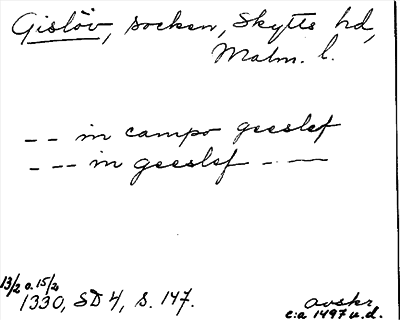 Gislöv, socken, Skytts hd,
Malm. l.
-- in campo geeslef
--- in geeslef ---
13/2 o. 15/2
1330, SD 4, s. 147.
avskr.
c:a 1497 u.d.